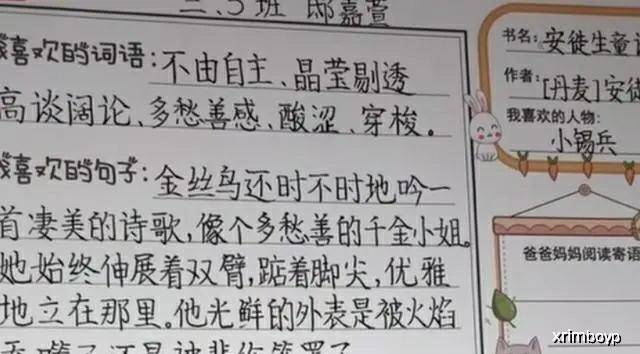 二.5班 邸嘉萱
喜欢的词语:不由自主、晶莹剔透
高谈阔论、多愁善感、酸涩、穿梭。
喜欢的句子:金丝鸟还时不时地吟一
首凄美的诗歌,像个多愁善的千金小姐。
她始终伸展着双臂,踮着脚尖,优雅
地立在那里。他光鲜的外表是被火焰
书名:安徒生童
作者:[丹麦]安徒
我喜欢的人物:
小锡兵
爸爸妈妈阅读寄语
xrimboyp